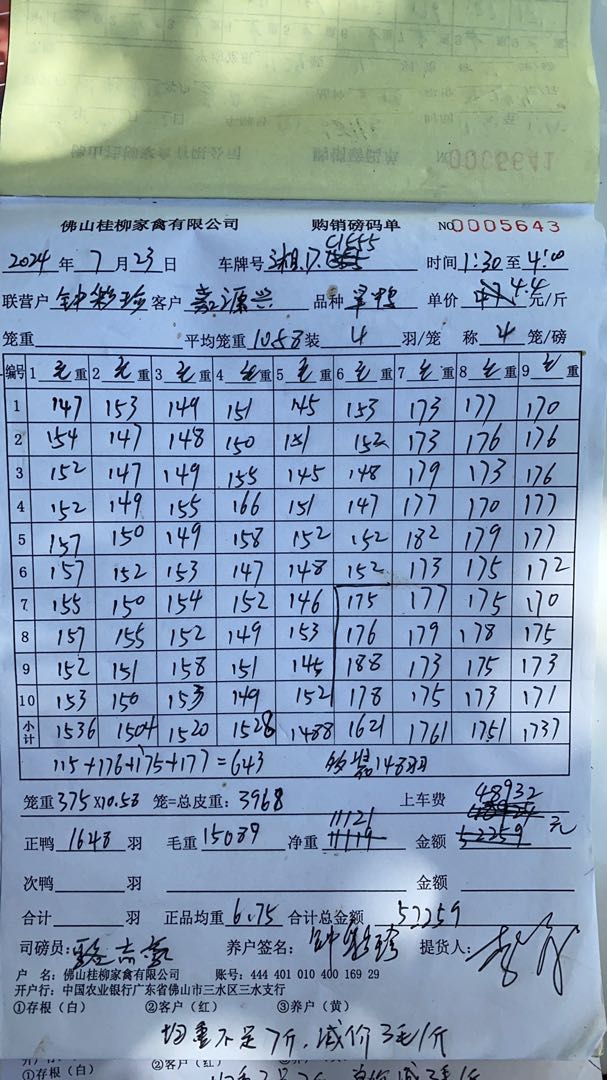 NO 0005641
佛山桂柳家禽有限公司 购销磅码单 NO 0005643
2024年7月23日 车牌号 湘D.C1555 时间1:30至4:00
联营户 钟彩珍 客户 嘉源兴 品种 单价 4.4 元/斤
笼重 平均笼重10.58装 4 羽/笼 称 4 笼/磅
编号 1 毛重 2 毛重 3 毛重 4 毛重 5 毛重 6 毛重 7 毛重 8 毛重 9 毛重
1 147 153 149 151 145 153 173 177 170
2 154 147 148 150 151 152 173 176 176
3 152 147 149 155 145 148 179 173 176
4 152 149 155 166 151 147 177 170 177
5 157 150 149 158 152 152 182 179 177
6 157 152 153 147 148 152 173 175 172
7 155 150 154 152 146 175 177 175 170
8 157 155 152 149 153 176 179 178 175
9 152 151 158 151 145 188 173 175 173
10 153 150 153 149 152 178 175 173 171
小计 1536 1504 1520 1528 1488 1621 1761 1751 1737
115+176+175+177=643 148羽
笼重375×10.58 笼=总皮重：3968 上车费 48932
正鸭 1648 羽 毛重 15089 净重 11121 11119 金额 52259 元
次鸭 羽 金额
合计 羽 正品均重 6.75 合计总金额 52259
司磅员： 养户签名：钟彩珍 提货人：
户 名：佛山桂柳家禽有限公司 账号：444 401 010 400 169 29
开户行：中国农业银行广东省佛山市三水区三水支行
①存根（白） ②客户（红） ③养户（黄）
均重不足7斤，减价3毛1斤
①存根（白） ②客户（红）